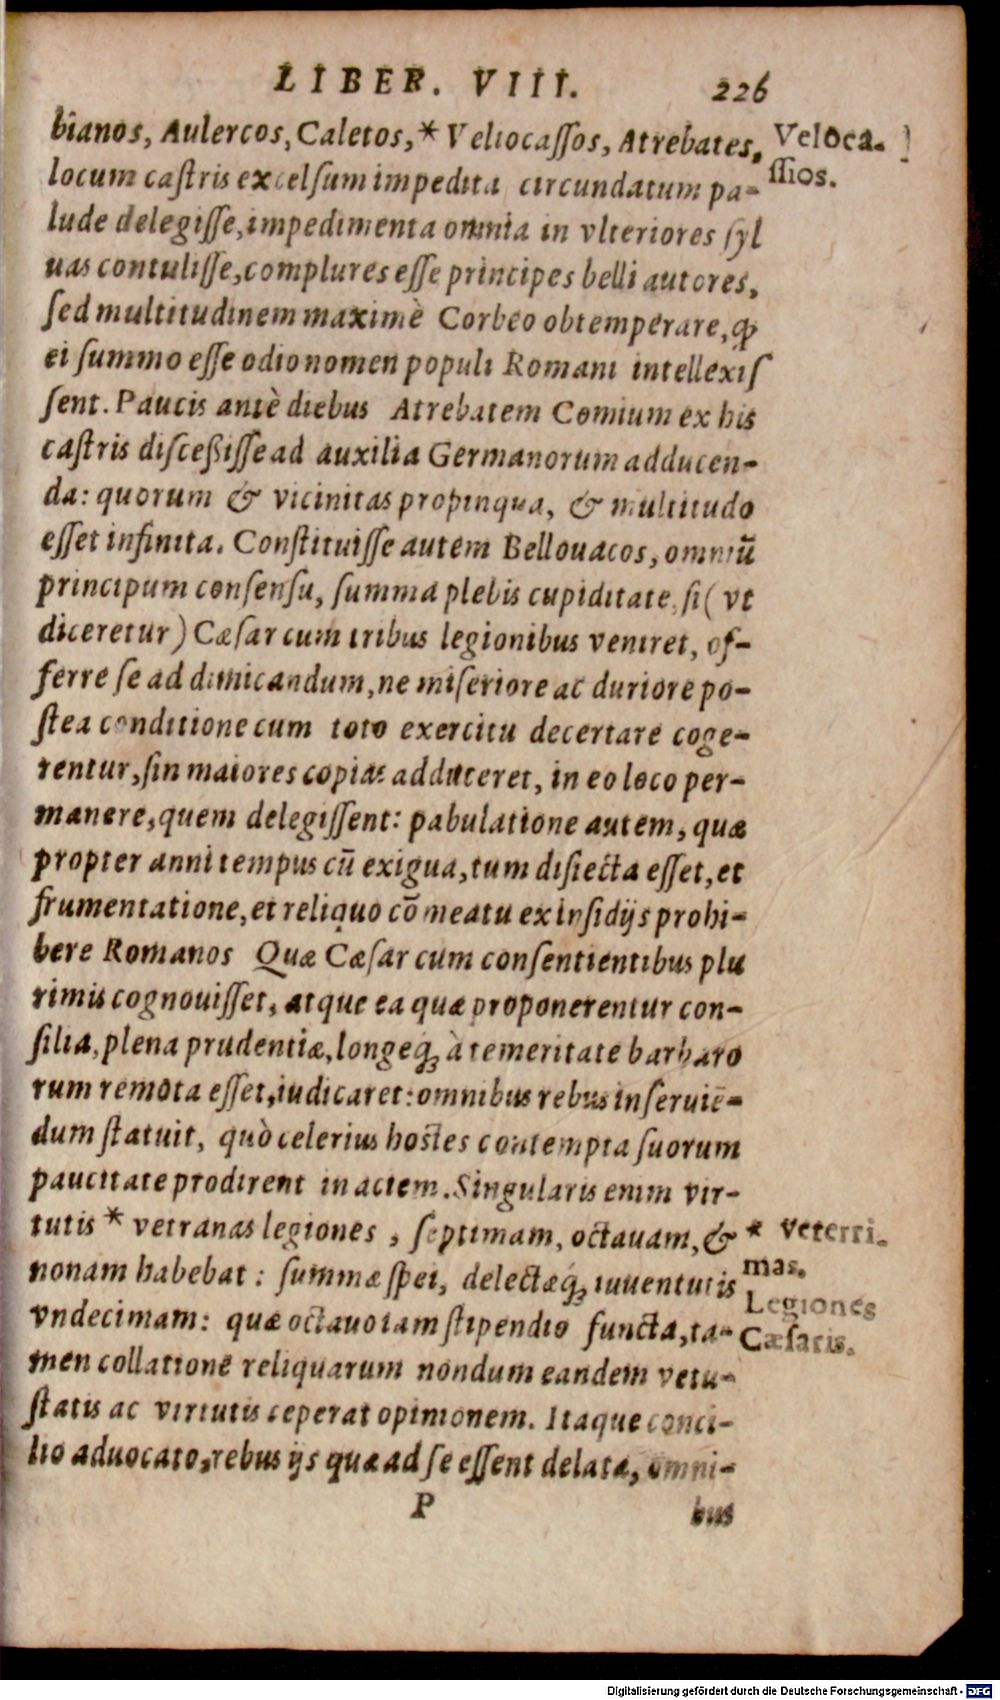 LIBER. VIII. 226
bianos, Aulercos, Caletos,* Veliocaſſos, Atrebates,
Veloca-
ſſios.
locum caſtris excelſum impedita circundatum pa-
lude delegiſſe, impedimenta omnia in vlteriores ſyl
uas contuliſſe, complures eſſe principes belli autores,
ſed multitudinem maximè Corbeo obtemperare, ꝙ
ei ſummo eſſe odio nomen populi Romani intellexiſ
ſent. Paucis antè diebus Atrebatem Comium ex his
caſtris diſceßiſſe ad auxilia Germanorum adducen-
da: quorum & vicinitas propinqua, & multitudo
eſſet infinita. Conſtituiſſe autem Bellouacos, omniū
principum conſenſu, ſumma plebis cupiditate, ſi (vt
diceretur) Cæſar cum tribus legionibus veniret, of-
ferre ſe ad dimicandum, ne miſeriore ac duriore po-
ſtea conditione cum toto exercitu decertare coge-
rentur, ſin maiores copias adduceret, in eo loco per-
manere, quem delegiſſent: pabulatione autem, quæ
propter anni tempus cū exigua, tum diſiecta eſſet, et
frumentatione, et reliquo cōmeatu ex inſidijs prohi-
bere Romanos Quæ Cæſar cum conſentientibus plu
rimis cognouiſſet, atque ea quæ proponerentur con-
ſilia, plena prudentiæ, longeq; à temeritate barbaro
rum remota eſſet, iudicaret: omnibus rebus inſeruiē-
dum ſtatuit, quò celerius hoſtes contempta ſuorum
paucitate prodirent in aciem. Singularis enim vir-
tutis * vetranas legiones, ſeptimam, octauam, &
* veterri-
mas.
nonam habebat: ſummæ ſpei, delectæq; iuuentutis
Legiones
Cæſaris.
vndecimam: quæ octauo iam ſtipendio functa, ta-
men collatione reliquarum nondum eandem vetu-
ſtatis ac virtutis ceperat opinionem. Itaque conci-
lio aduocato, rebus ijs quæ ad ſe eſſent delatæ, omni-
P bus
Digitalisierung gefördert durch die Deutsche Forschungsgemeinschaft - DFG